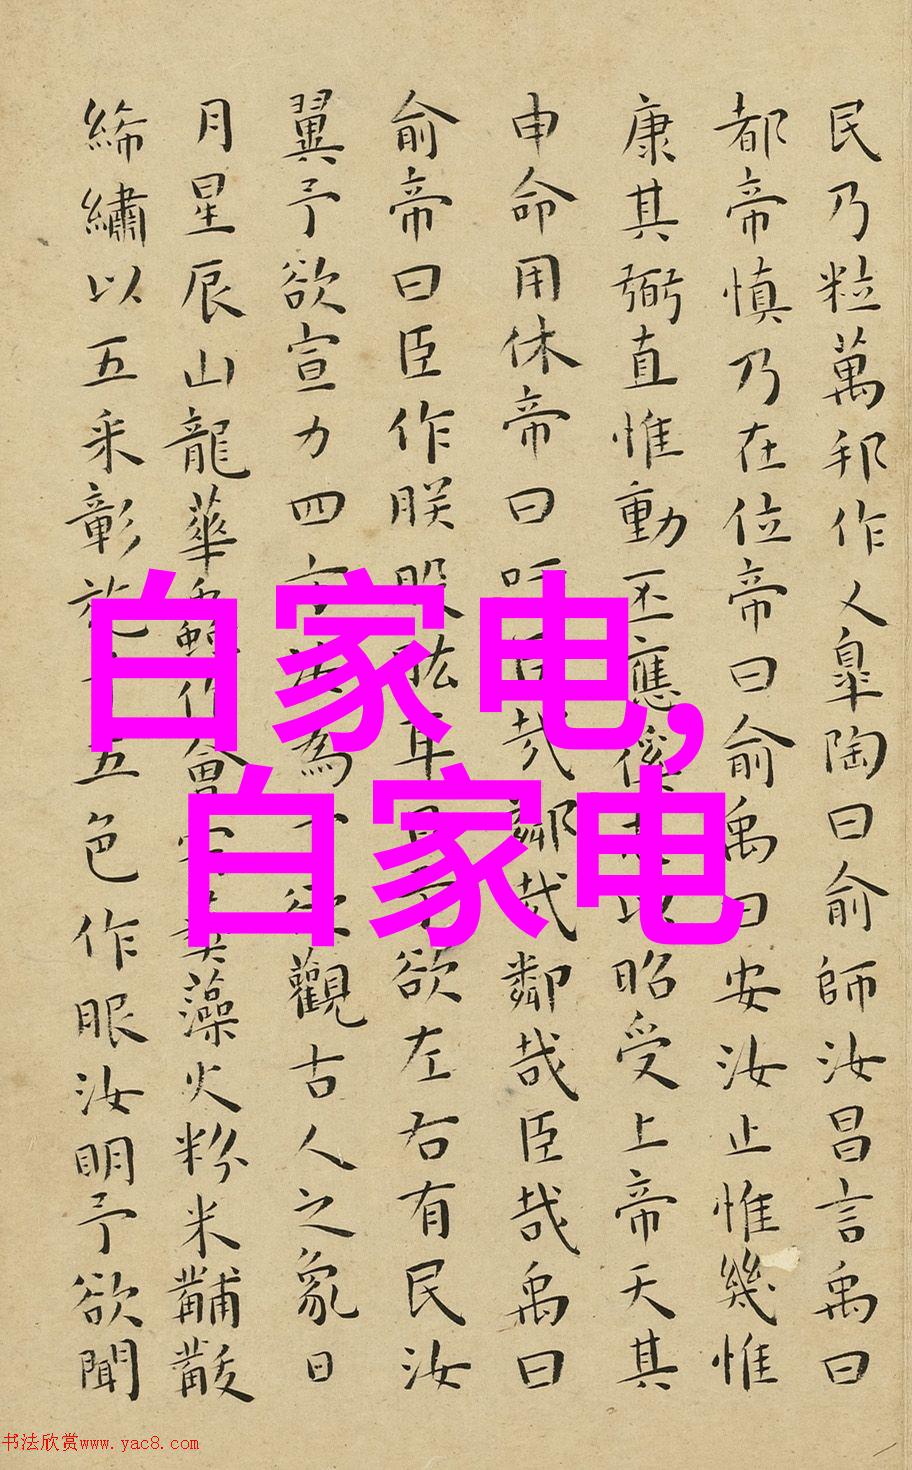 民乃粒萬邦作乂皐陶曰俞師汝昌言禹曰
都帝慎乃在位帝曰俞禹曰安汝止惟幾惟
康其弼直惟動丕應徯以昭受上帝天其
申命用休帝曰吁臣哉鄰哉鄰哉臣哉禹曰
俞帝曰臣作朕股肱耳目予欲左右有民汝
翼予欲宣力四方汝為欲觀古人之象日
月星辰山龍華蟲作會宗彝藻火粉米黼黻
絺繡以五采彰施五色作服汝明予欲聞
自家电,
自家电
书法欣赏www.yac8.com